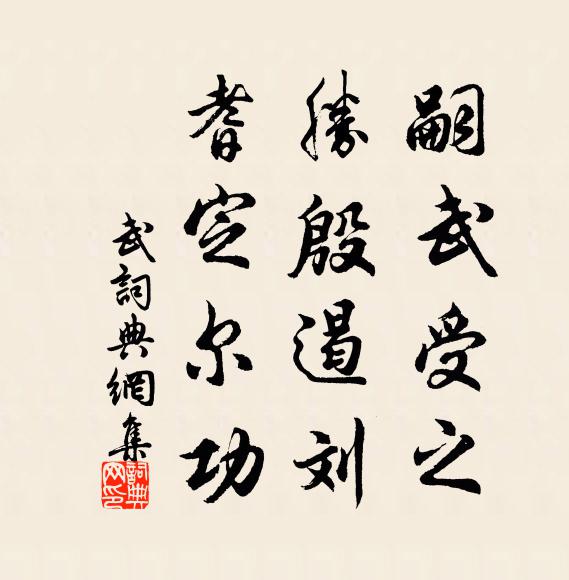 嗣武受之
勝殷遏刘
耆定尔功
武詞典網集
詞典
网印